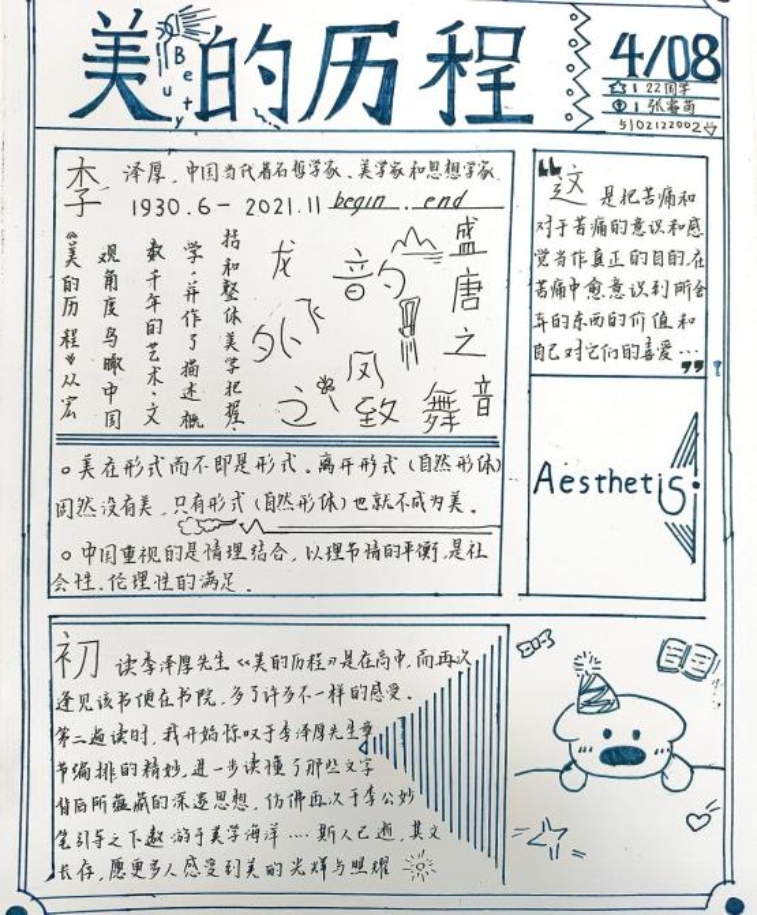 美的历程
Beuty
4/08
22国学
张睿茵
5102122002
李泽厚，中国当代著名哲学家、美学家和思想学家.
1930.6 — 2021.11 begin . end
《美的历程》从宏
观角度鸟瞰中国
数千年的艺术、文
学，并作了描述概
括和整体美学把握.
龙飞
凤
舞
音韵
外
之
致
盛唐之音
这是把苦痛和
对于苦痛的意识和感
觉当作真正的目的.在
苦痛中愈意识到所会
弃的东西的价值和
自己对它们的喜爱…
Aesthetis
。美在形式而不即是形式．离开形式（自然形体）
固然没有美，只有形式（自然形体）也就不成为美．
。中国重视的是情理结合，以理节情的平衡，是社
会性、伦理性的满足．
初读李泽厚先生《美的历程》是在高中，而再次
逢见该书便在书院，多了许多不一样的感受．
第二遍读时，我开始惊叹于李泽厚先生章
节编排的精妙，进一步读懂了那些文字
背后所蕴藏的深邃思想，仿佛再次于李公妙
笔引导之下遨游于美学海洋….斯人已逝，其文
长存，愿更多人感受到美的光辉与照耀